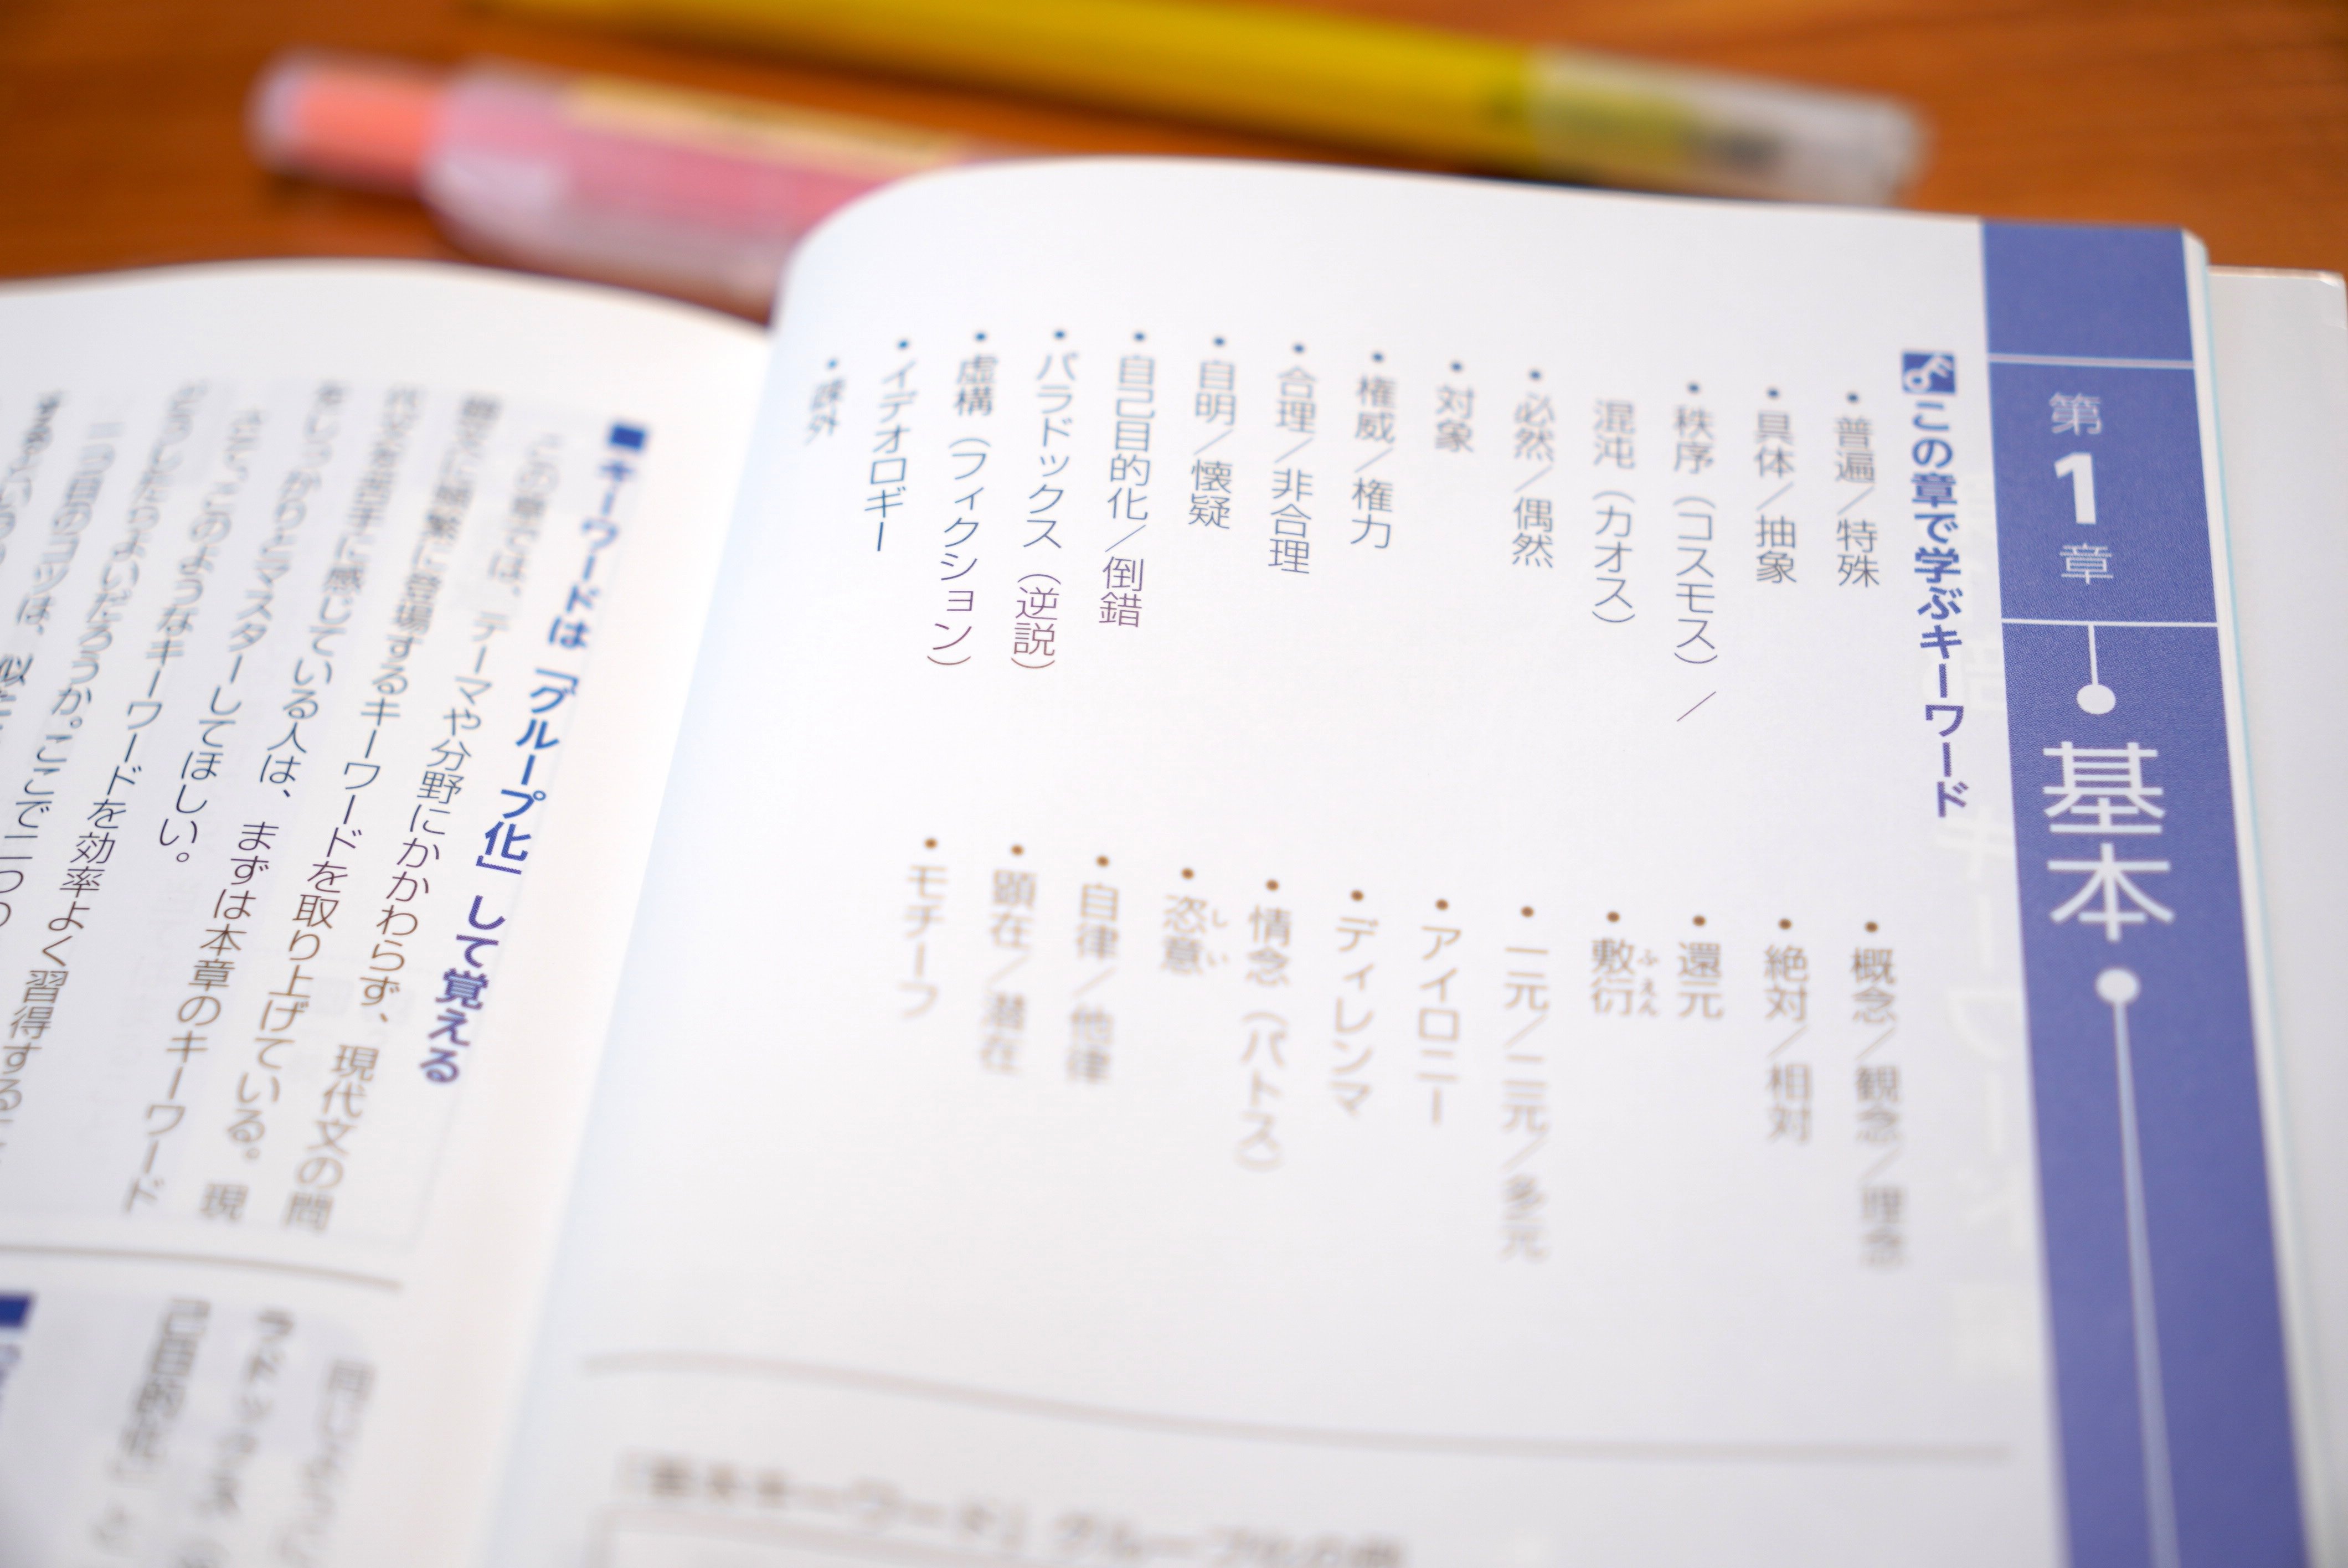 第1章
基本
この章で学ぶキーワード
・普遍／特殊
・具体／抽象
・秩序（コスモス）／
混沌（カオス）
・必然／偶然
・対象
・権威／権力
・合理／非合理
・自明／懐疑
・自己目的化／倒錯
・パラドックス（逆説）
・虚構（フィクション）
・イデオロギー
・疎外
・概念／観念／理念
・絶対／相対
・還元
・敷衍
ふえん
・一元／二元／多元
・アイロニー
・ディレンマ
・情念（パトス）
・恣意
しい
・自律／他律
・顕在／潜在
・モチーフ
■キーワードは「グループ化」して覚える
この章では、テーマや分野にかかわらず、現代文の問
題文に頻繁に登場するキーワードを取り上げている。現
代文を苦手に感じている人は、まずは本章のキーワード
をしっかりとマスターしてほしい。
さて、このようなキーワードを効率よく習得する
どうしたらよいだろうか。ここで二つの
二つ目のコツは、似た